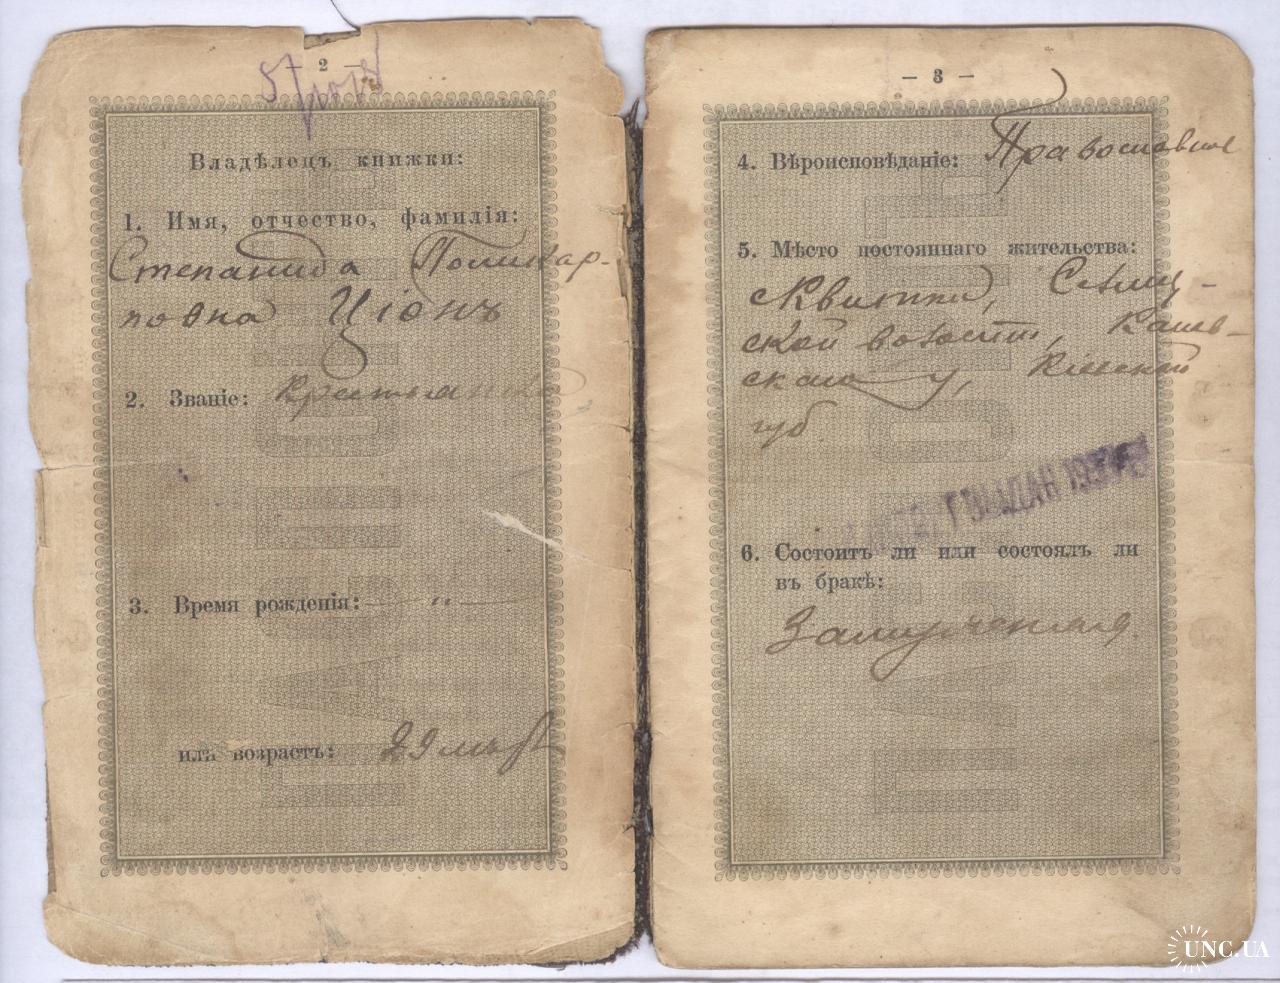 — 2 —
Владѣлецъ книжки:
1. Имя, отчество, фамилія:
Степанида Поликар-
повна Ціонъ
2. Званіе: Крестьянка
3. Время рожденія: — „ —
или возрастъ: 29 лѣтъ
— 3 —
4. Вѣроисповѣданіе: Православное
5. Мѣсто постояннаго жительства:
Квитки,
ской волости, Канев-
скаго у, Кіевской
губ.
ГРАЖДАН
6. Состоитъ ли или состоялъ ли
въ бракѣ:
Замужемъ
ПАСПОРТНАЯ
UNC.UA